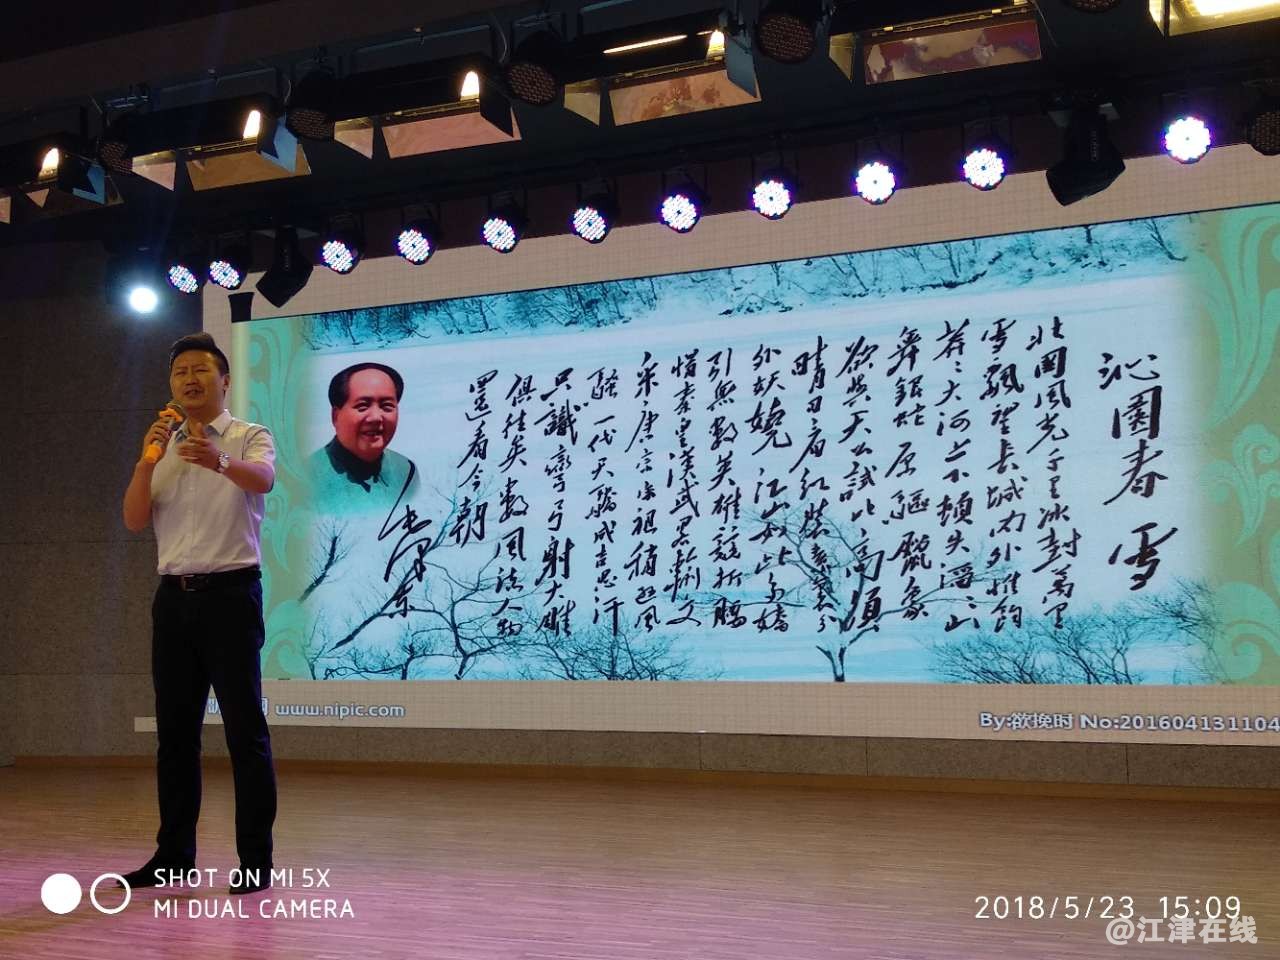 沁園春 雪
北國風光千里冰封萬里
雪飄望長城内外惟餘
莽々大河上下頓失滔々
舞銀蛇原驅臘象
欲與天公試比高須
晴日看紅裝素裹分
外妖嬈 江山如此多嬌
引無數英雄競折腰
惜秦皇漢武畧輸文
采唐宗宋祖稍遜風
騷一代天驕成吉思汗
只識彎弓射大雕
俱往矣數風流人物
還看今朝
毛澤東
www.nipic.com
By:欲挽时 No:201604131104
SHOT ON MI 5X
MI DUAL CAMERA
2018/5/23 15:09
@江津在线